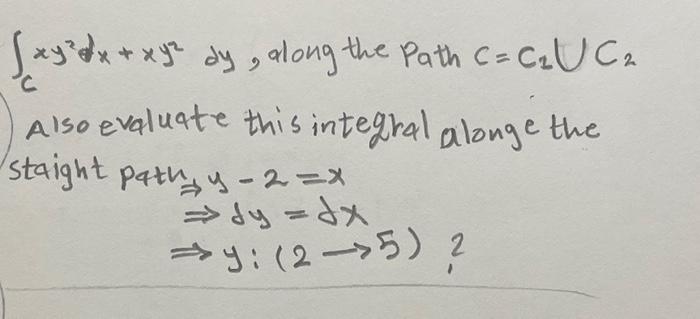 ∫_C xy²dx + xy² dy , along the Path C = C₁ ∪ C₂
Also evaluate this integral alonge the
staight path ⇒ y - 2 = x
⇒ dy = dx
⇒ y: (2 → 5) ?